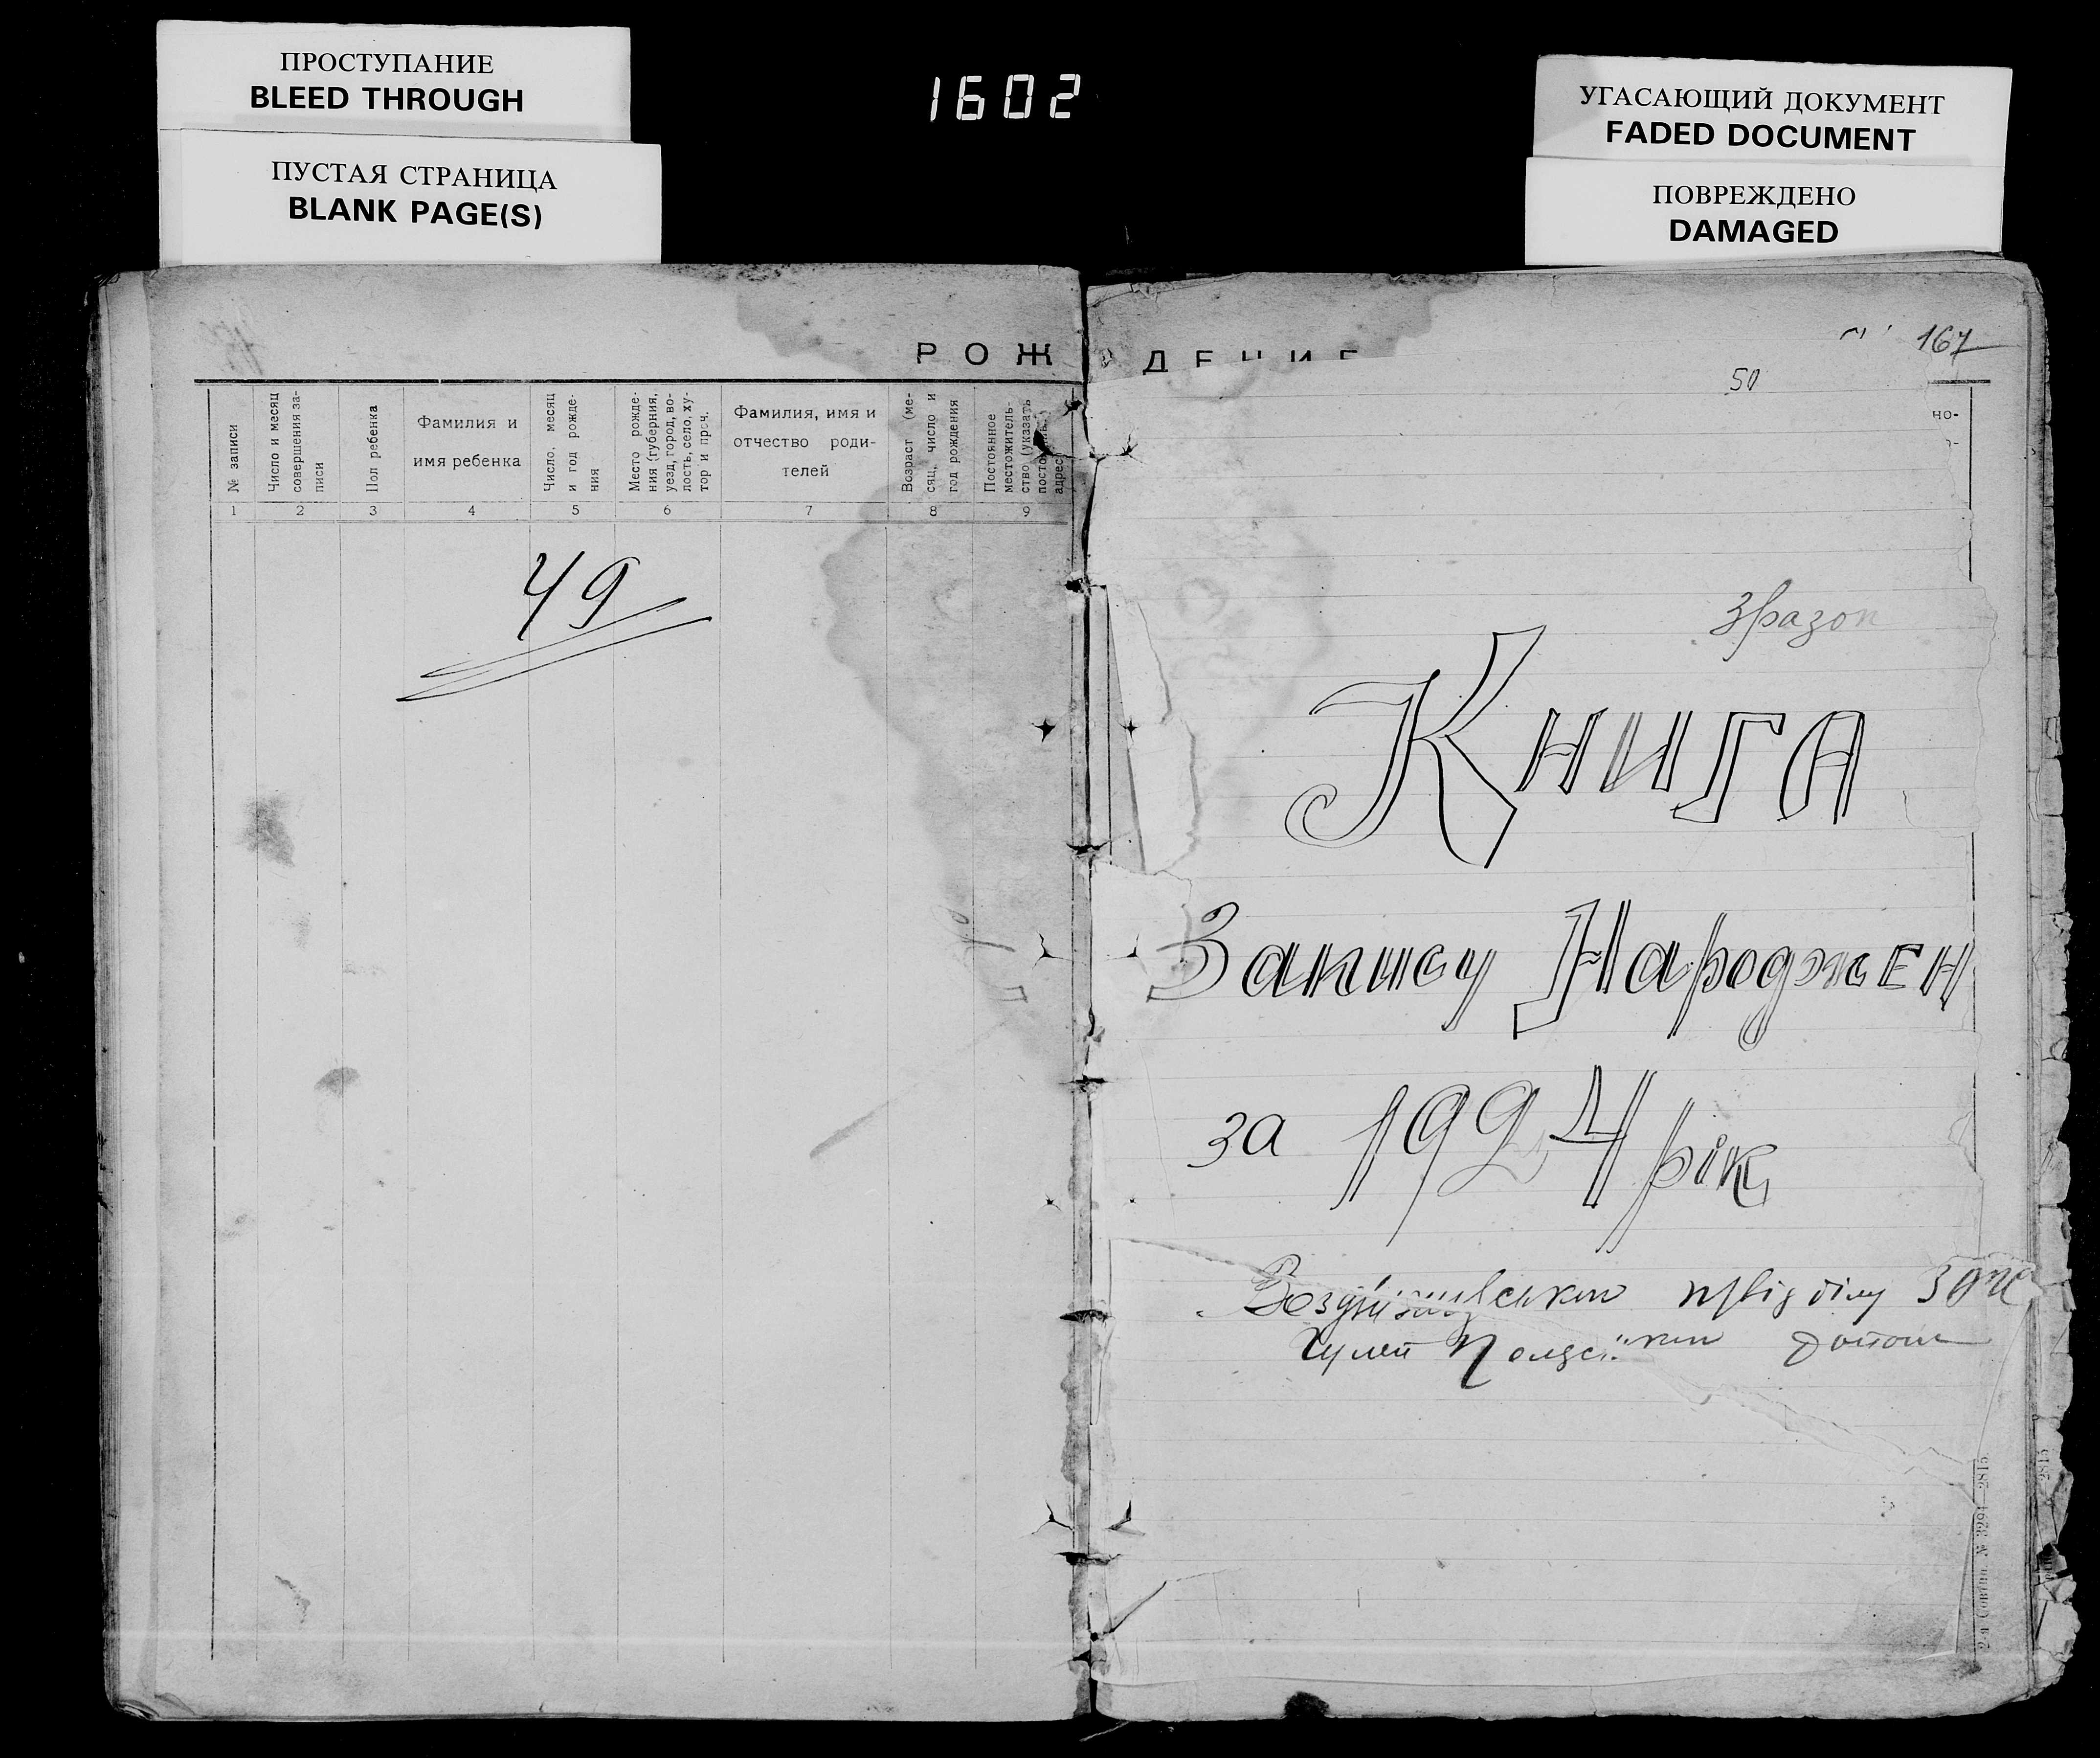 ПРОСТУПАНИЕ
BLEED THROUGH
ПУСТАЯ СТРАНИЦА
BLANK PAGE(S)
1602
УГАСАЮЩИЙ ДОКУМЕНТ
FADED DOCUMENT
ПОВРЕЖДЕНО
DAMAGED
РОЖДЕНИЕ
№ записи
Число и месяц
совершения за-
писи
Пол ребенка
Фамилия и
имя ребенка
Число, месяц
и год рожде-
ния
Место рожде-
ния (губерния,
уезд, город, во-
лость, село, ху-
тор и проч.
Фамилия, имя и
отчество роди-
телей
Возраст (ме-
сяц, число и
год рождения
Постоянное
местожитель-
ство (указать
адрес
1 2 3 4 5 6 7 8 9
49
167
50
но-
Зразок
Книга
Запису Народжен
за 1924 рік
підвідділу
2815
№ 3294—2815